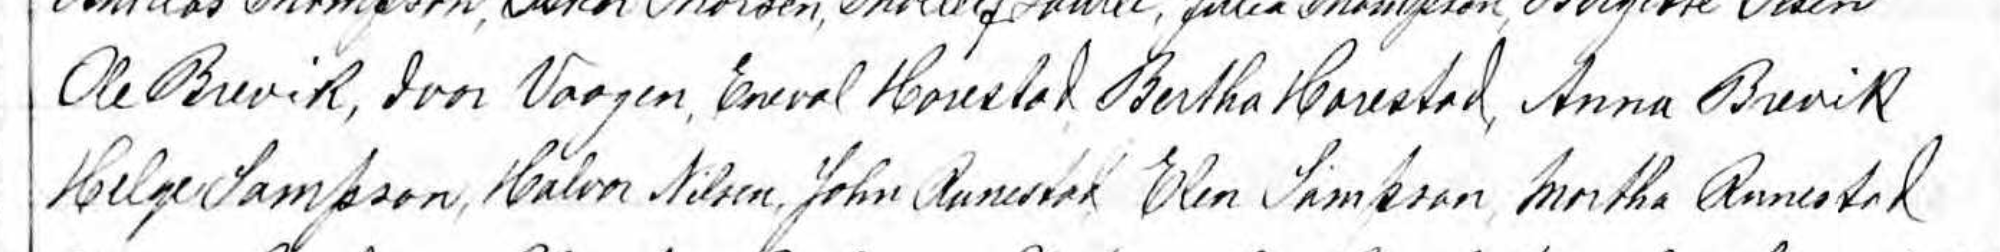 Andreas Thompson, Thorsen, Julia Thompson, Olsen
Ole Brevik, Ivor Vaagen, Eneval Harestad Bertha Harestad, Anna Brevik
Helge Sampson, Halvor Nilsen, John Runestad Elen Sampson, Martha Runestad